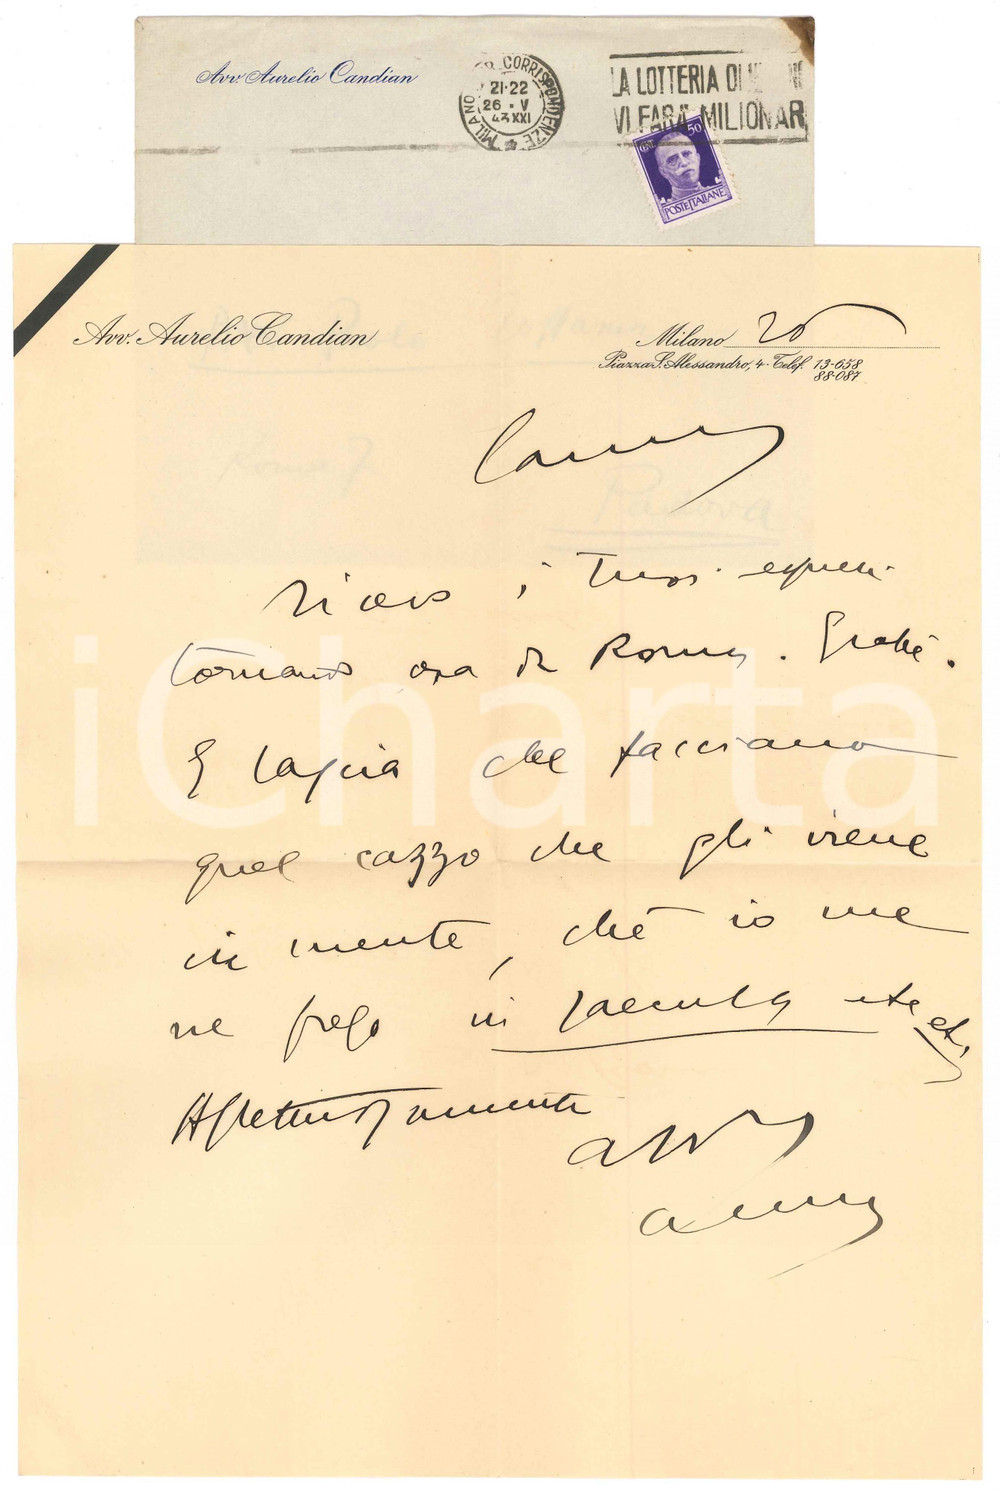 Avv. Aurelio Candian
MILANO CORRISPONDENZE
21·22
26·V
43XXI
LA LOTTERIA DI
VI FARÀ MILIONAR
50
POSTE ITALIANE
Avv. Aurelio Candian
Milano 26
Piazza S. Alessandro, 4 - Telef. 13-658
88-087
Padova
Roma 7
ricevo i tuoi espressi
tornando ora da Roma. Grazie.
E lascia che facciano
quel cazzo che gli viene
in mente, chè io me
ne frego in
Affettuosamente
iCharta